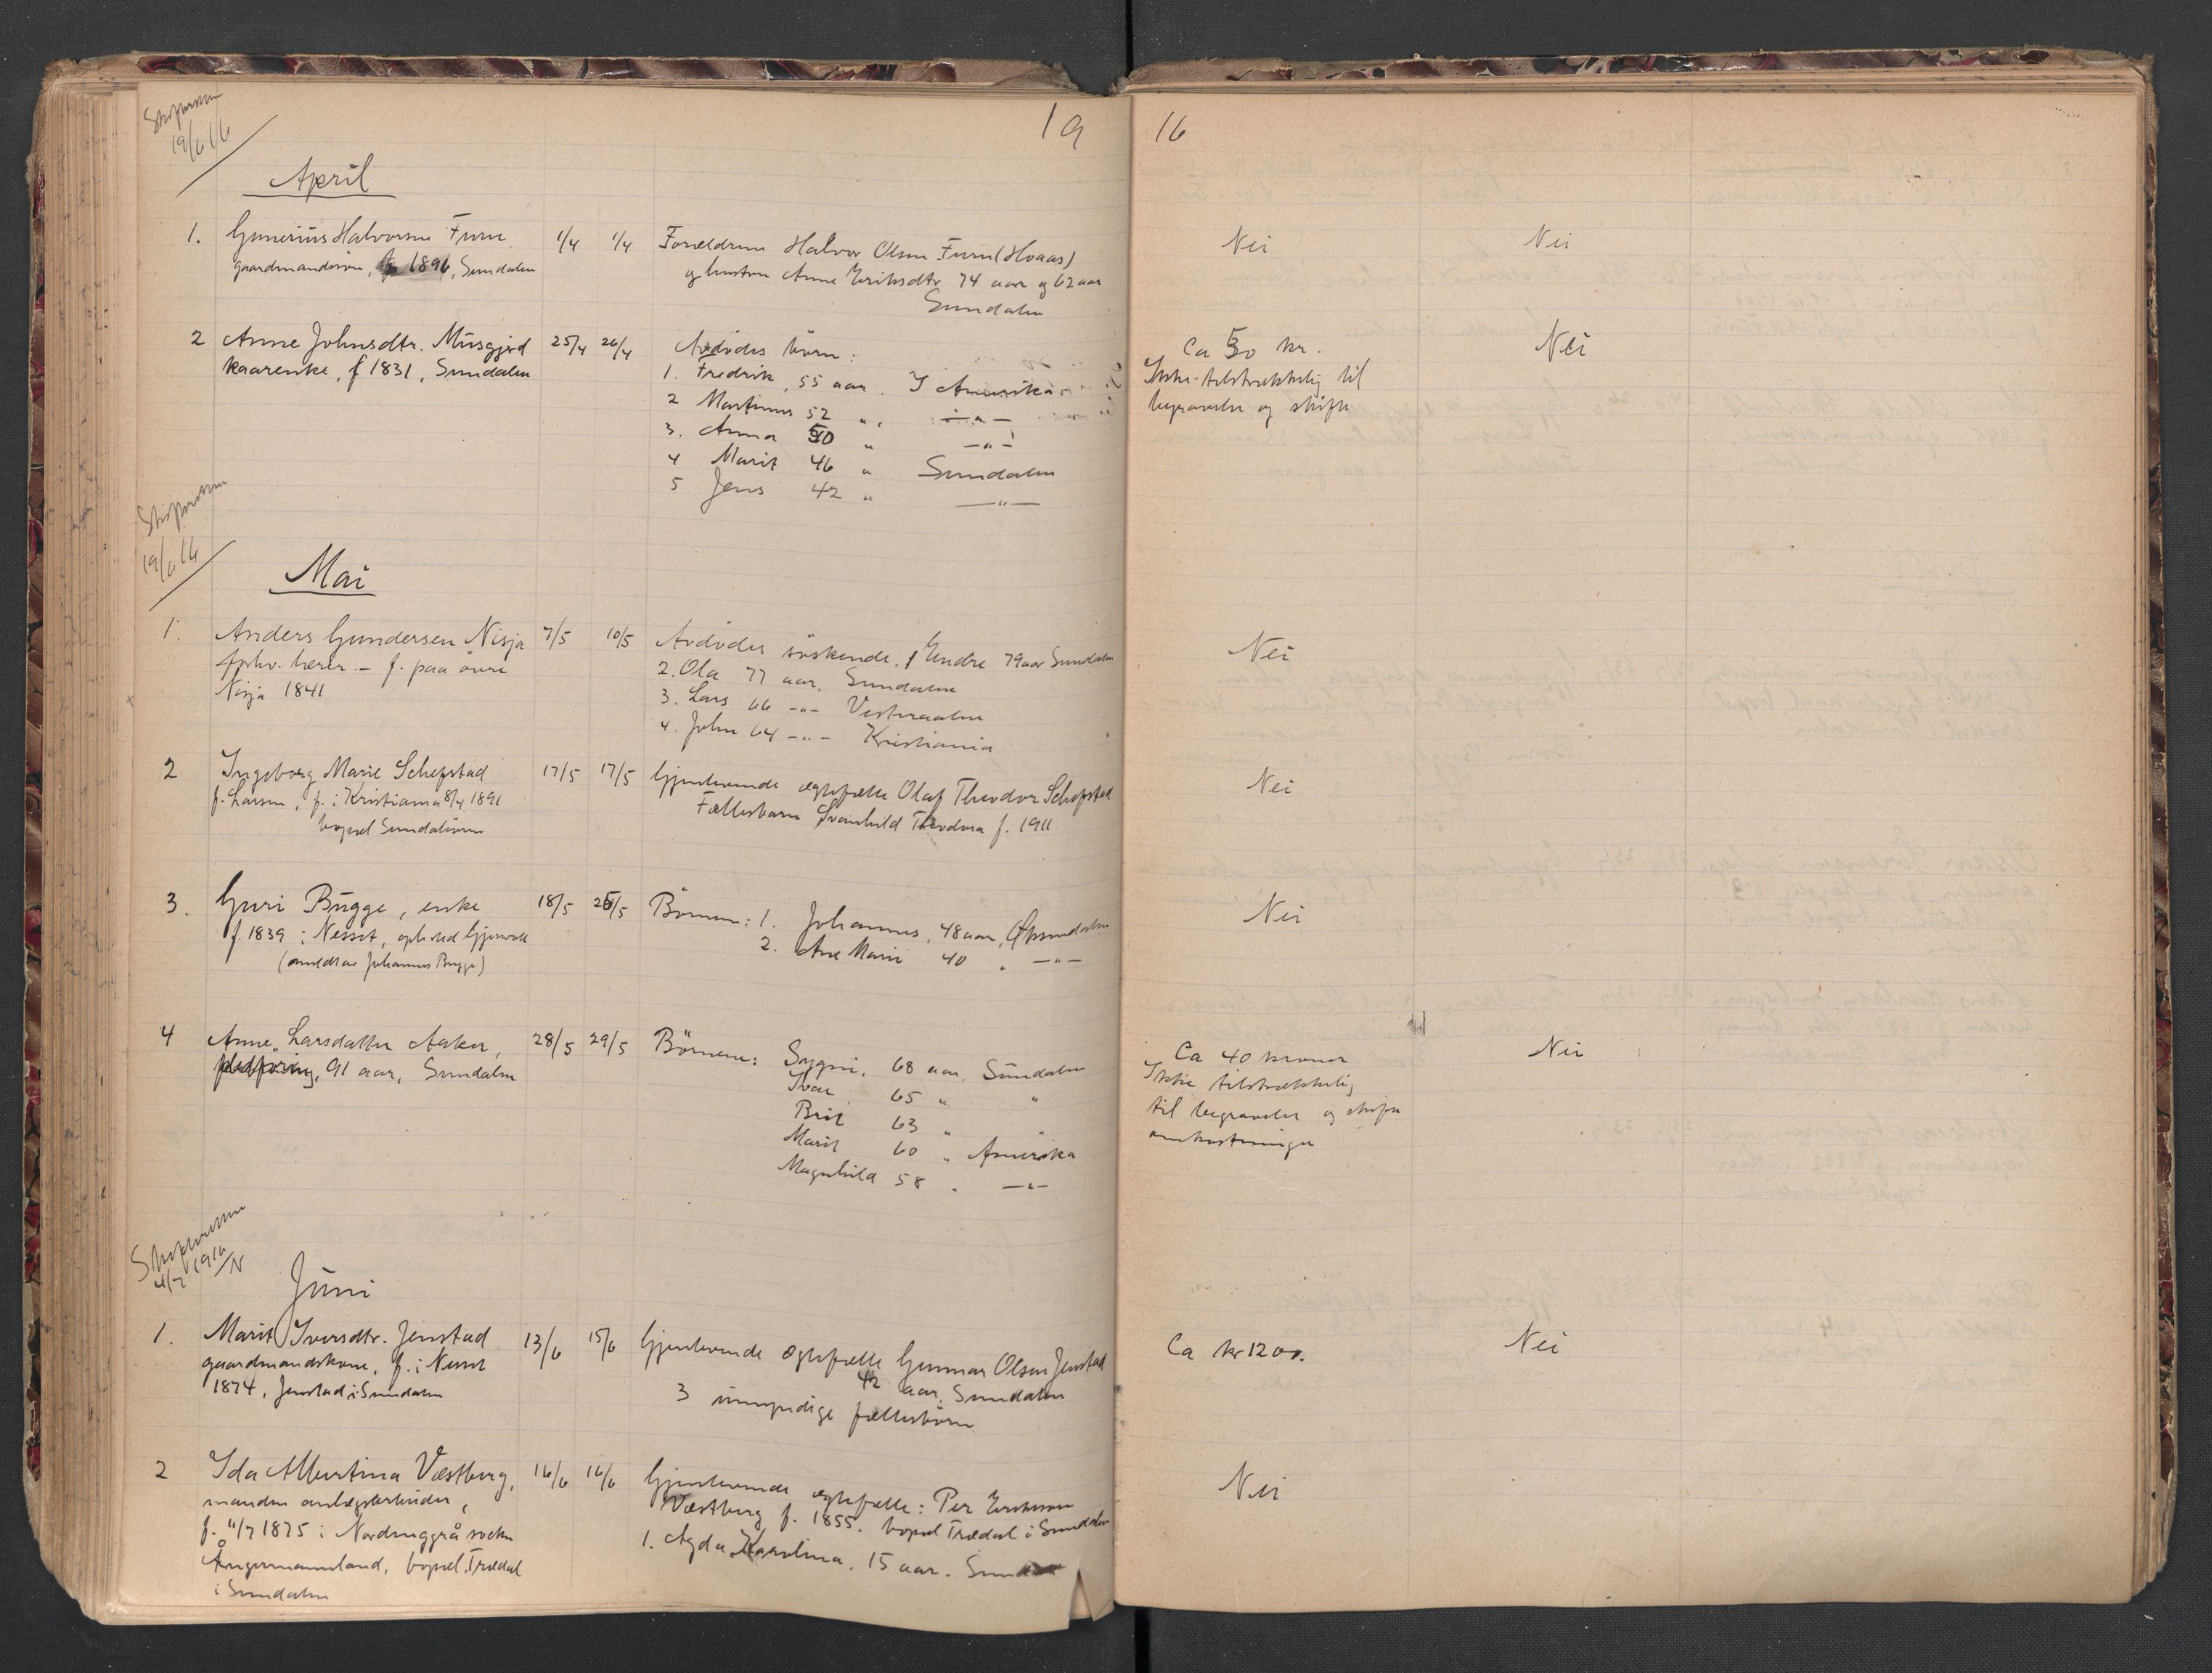 19 16
19/6 16
April
1. Gunerius Halvorsen Furu 1/4 1/4 Forældrene Halvor Olsen Furu (Hoaas) Nei Nei
gaardmandssön, 1896, Sundalen og hustru Anne Eriksdtr 74 aar og 62 aar
Sundalen
2 Anne Johnsdtr. Musgjerd 25/4 26/4 Avdödes börn: Ca 50 kr. Nei
kaarenke, f 1831, Sundalen 1. Fredrik, 55 aar. I Amerika Ikke tilstrækkelig til
2 Martinus 52 " — " — begravelse og skifte
3. Anna 50 " — " —
4 Marit 46 " Sundalen
5 Jens 42 " — " —
19/6 16
Mai
1. Anders Gundersen Nisja 7/5 10/5 Avdödes söskende. 1 Endre 79 aar Sundalen Nei
forhv. lærer. – f. paa övre 2. Ola 77 aar. Sundalen
Nisja 1841 3. Lars 66 –"– Vesteraalen
4. John 64 –"– Kristiania
2 Ingeborg Marie Schefstad 17/5 17/5 Gjenlevende ægtefælle Olaf Theodor Schefstad Nei
f. Larsen, f. i Kristiania 8/4 1891 Fællesbarn Svanhild Theodora f. 1911
bopæl Sundalsören
3. Guri Bugge, enke 18/5 25/5 Börnene: 1. Johannes, 48 aar, Öksendalen Nei
f. 1839 i Nesset, opholdt Gjervold 2. Ane Marie 40 " — " —
(anmeldt av Johannes Bugge)
4 Anne Larsdatter Aaker, 28/5 29/5 Börnene: Sygni, 68 aar, Sundalen Ca 40 kroner Nei
91 aar, Sundalen Ivar 65 " " Ikke tilstrækkelig
Brit 63 " " til begravelse og skifte
Marit 60 " Amerika omkostninger
Magnhild 58 " — " —
4/7 1916 /N
Juni
1. Marit Iversdtr. Jenstad 13/6 15/6 Gjenlevende ægtefælle Gunnar Olsen Jenstad Ca kr 1200. Nei
gaardmandskone, f. i Nesset 42 aar, Sundalen
1874, Jenstad i Sundalen 3 umyndige fællesbörn
2 Ida Albertina Væstberg, 16/6 16/6 Gjenlevende ægtefælle: Per Erikson Nei
manden anlægsarbeider, Væstberg f. 1855. bopæl Trædal i Sundalen
f. 11/7 1875 i Nordinggrå socken 1. Agda Karolina. 15 aar. Sundalen
Ångermannland, bopæl Trædal
i Sundalen